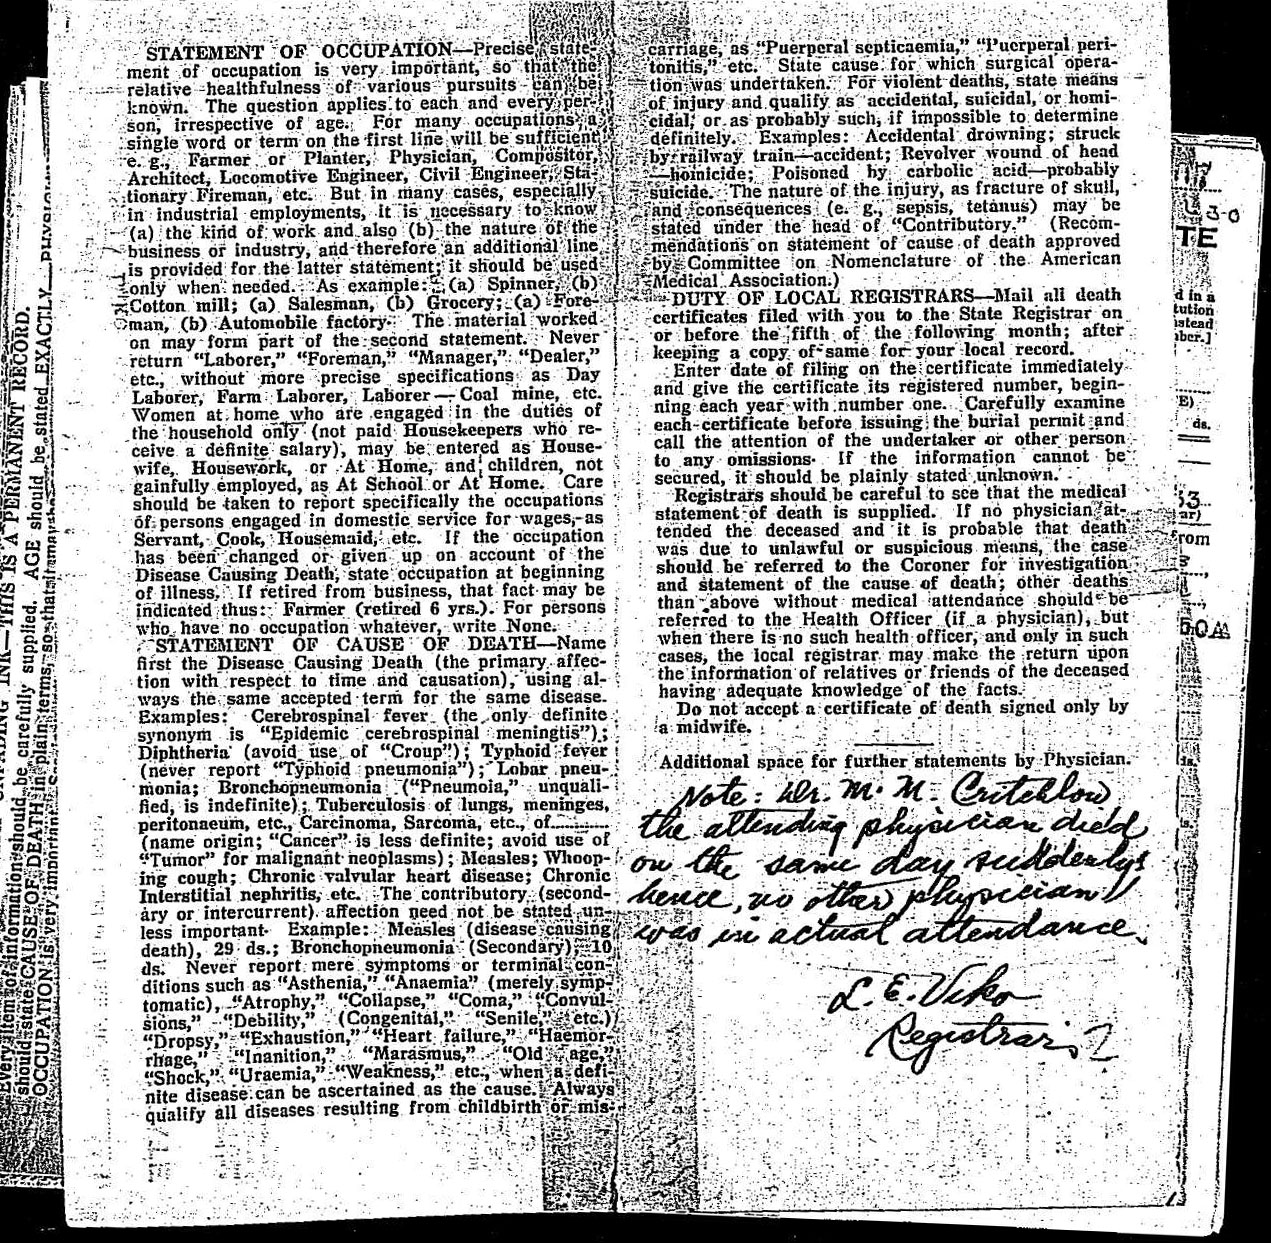 STATEMENT OF OCCUPATION—Precise state-
ment of occupation is very important, so that the
relative healthfulness of various pursuits can be
known. The question applies to each and every per-
son, irrespective of age. For many occupations a
single word or term on the first line will be sufficient
e. g., Farmer or Planter, Physician, Compositor,
Architect, Locomotive Engineer, Civil Engineer, Sta-
tionary Fireman, etc. But in many cases, especially
in industrial employments, it is necessary to know
(a) the kind of work and also (b) the nature of the
business or industry, and therefore an additional line
is provided for the latter statement; it should be used
only when needed. As example: (a) Spinner, (b)
Cotton mill; (a) Salesman, (b) Grocery; (a) Fore-
man, (b) Automobile factory. The material worked
on may form part of the second statement. Never
return "Laborer," "Foreman," "Manager," "Dealer,"
etc., without more precise specifications as Day
Laborer, Farm Laborer, Laborer—Coal mine, etc.
Women at home who are engaged in the duties of
the household only (not paid Housekeepers who re-
ceive a definite salary), may be entered as House-
wife, Housework, or At Home, and children, not
gainfully employed, as At School or At Home. Care
should be taken to report specifically the occupations
of persons engaged in domestic service for wages, as
Servant, Cook, Housemaid, etc. If the occupation
has been changed or given up on account of the
Disease Causing Death, state occupation at beginning
of illness. If retired from business, that fact may be
indicated thus: Farmer (retired 6 yrs.). For persons
who have no occupation whatever, write None.
STATEMENT OF CAUSE OF DEATH—Name
first the Disease Causing Death (the primary affec-
tion with respect to time and causation), using al-
ways the same accepted term for the same disease.
Examples: Cerebrospinal fever (the only definite
synonym is "Epidemic cerebrospinal meningtis");
Diphtheria (avoid use of "Croup"); Typhoid fever
(never report "Typhoid pneumonia"); Lobar pneu-
monia; Bronchopneumonia ("Pneumoia," unquali-
fied, is indefinite); Tuberculosis of lungs, meninges,
peritonaeum, etc., Carcinoma, Sarcoma, etc., of............
(name origin; "Cancer" is less definite; avoid use of
"Tumor" for malignant neoplasms); Measles; Whoop-
ing cough; Chronic valvular heart disease; Chronic
Interstitial nephritis, etc. The contributory (second-
ary or intercurrent) affection need not be stated un-
less important. Example: Measles (disease causing
death), 29 ds.; Bronchopneumonia (Secondary) 10
ds. Never report mere symptoms or terminal con-
ditions such as "Asthenia," "Anaemia" (merely symp-
tomatic), "Atrophy," "Collapse," "Coma," "Convul-
sions," "Debility," (Congenital," "Senile," etc.)
"Dropsy," "Exhaustion," "Heart failure," "Haemor-
rhage," "Inanition," "Marasmus," "Old age,"
"Shock," "Uraemia," "Weakness," etc., when a defi-
nite disease can be ascertained as the cause. Always
qualify all diseases resulting from childbirth or mis-
carriage, as "Puerperal septicaemia," "Puerperal peri-
tonitis," etc. State cause for which surgical opera-
tion was undertaken. For violent deaths, state means
of injury and qualify as accidental, suicidal, or homi-
cidal, or as probably such, if impossible to determine
definitely. Examples: Accidental drowning; struck
by railway train—accident; Revolver wound of head
—homicide; Poisoned by carbolic acid—probably
suicide. The nature of the injury, as fracture of skull,
and consequences (e. g., sepsis, tetanus) may be
stated under the head of "Contributory." (Recom-
mendations on statement of cause of death approved
by Committee on Nomenclature of the American
Medical Association.)
DUTY OF LOCAL REGISTRARS—Mail all death
certificates filed with you to the State Registrar on
or before the fifth of the following month; after
keeping a copy of same for your local record.
Enter date of filing on the certificate immediately
and give the certificate its registered number, begin-
ning each year with number one. Carefully examine
each certificate before issuing the burial permit and
call the attention of the undertaker or other person
to any omissions. If the information cannot be
secured, it should be plainly stated unknown.
Registrars should be careful to see that the medical
statement of death is supplied. If no physician at-
tended the deceased and it is probable that death
was due to unlawful or suspicious means, the case
should be referred to the Coroner for investigation
and statement of the cause of death; other deaths
than above without medical attendance should be
referred to the Health Officer (if a physician), but
when there is no such health officer, and only in such
cases, the local registrar may make the return upon
the information of relatives or friends of the deceased
having adequate knowledge of the facts.
Do not accept a certificate of death signed only by
a midwife.
Additional space for further statements by Physician.
Note: Dr. M. M. Critchlow,
the attending physician died
on the same day suddenly
hence, no other physician
was in actual attendance.
L. E. Viko
Registrar.
INK—THIS IS A PERMANENT RECORD.
Every item of information should be carefully supplied. AGE should be stated EXACTLY. PHYSICI
should state CAUSE OF DEATH in plain terms, so that it may
OCCUPATION is very important.
30
TE
d in a
tution
nstead
ber.]
E)
ds.
53
ar)
rom
ds.